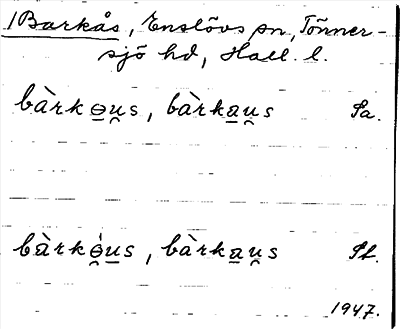 Barkås, Enslövs sn, Tönner-
sjö hd, Hall. l.
bàrkɵu̯s, bàrkau̯s Sa.
bàrkɵ̯́us, bàrkau̯s Sf.
1947.